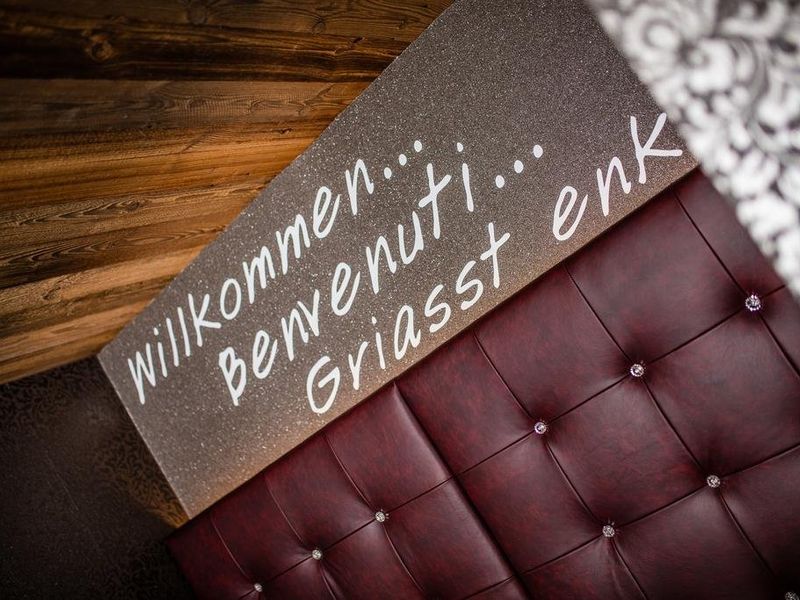 Willkommen...
Benvenuti...
Griasst enk